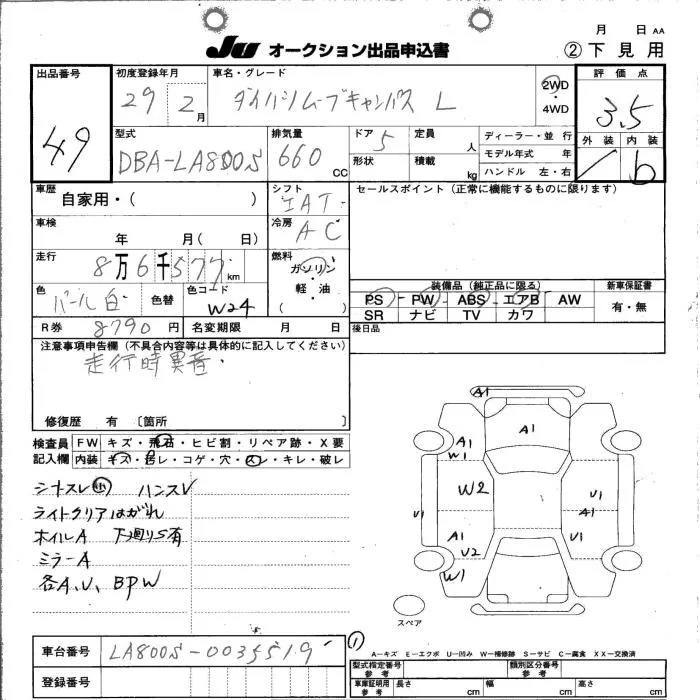 月 日 AA
JU オークション出品申込書
② 下見用
出品番号
49
初度登録年月
29 2月
車名・グレード
ダイハツムーブキャンバス L
2WD
・
4WD
評価点
3.5
外装 内装
b
型式
DBA-LA800S
排気量
660 CC
ドア 5
形状
定員 人
積載 kg
ディーラー・並行
モデル年式 年
ハンドル 左・右
車歴
自家用・( )
シフト
IAT
セールスポイント(正常に機能するものに限ります)
車検
年 月( 日)
冷房
AC
走行
8万6千577km
燃料
ガソリン
・
軽・油
( )
色
パール白
色替
色コード
W24
装備品(純正品に限る)
新車保証書
PS PW ABS エアB AW
SR ナビ TV カワ
有・無
R券 8790円
名変期限 月 日
後日品
注意事項申告欄(不具合内容等は具体的に記入してください)
走行時異音・
修復歴 有 〔箇所 〕
検査員
記入欄
FW キズ・飛石・ヒビ割・リペア跡・X要
内装 キズ・汚レ・コゲ・穴・スレ・キレ・破レ
シートスレ㊥ ハンスレ
ライトクリアはがれ
ホイルA 下廻りS有
ミラーA
各A、U、BPW
A1
A1
A1
W1
W2
U1
U1
A1
A1
U2
U1
W1
スペア
①
車台番号
LA800S-0035519
登録番号
A−キズ E−エクボ U−凹み W−補修跡 S−サビ C−腐食 XX−交換済
型式指定番号
参考
類別区分番号
参考
車庫証明用
参考
長さ cm
幅 cm
高さ cm